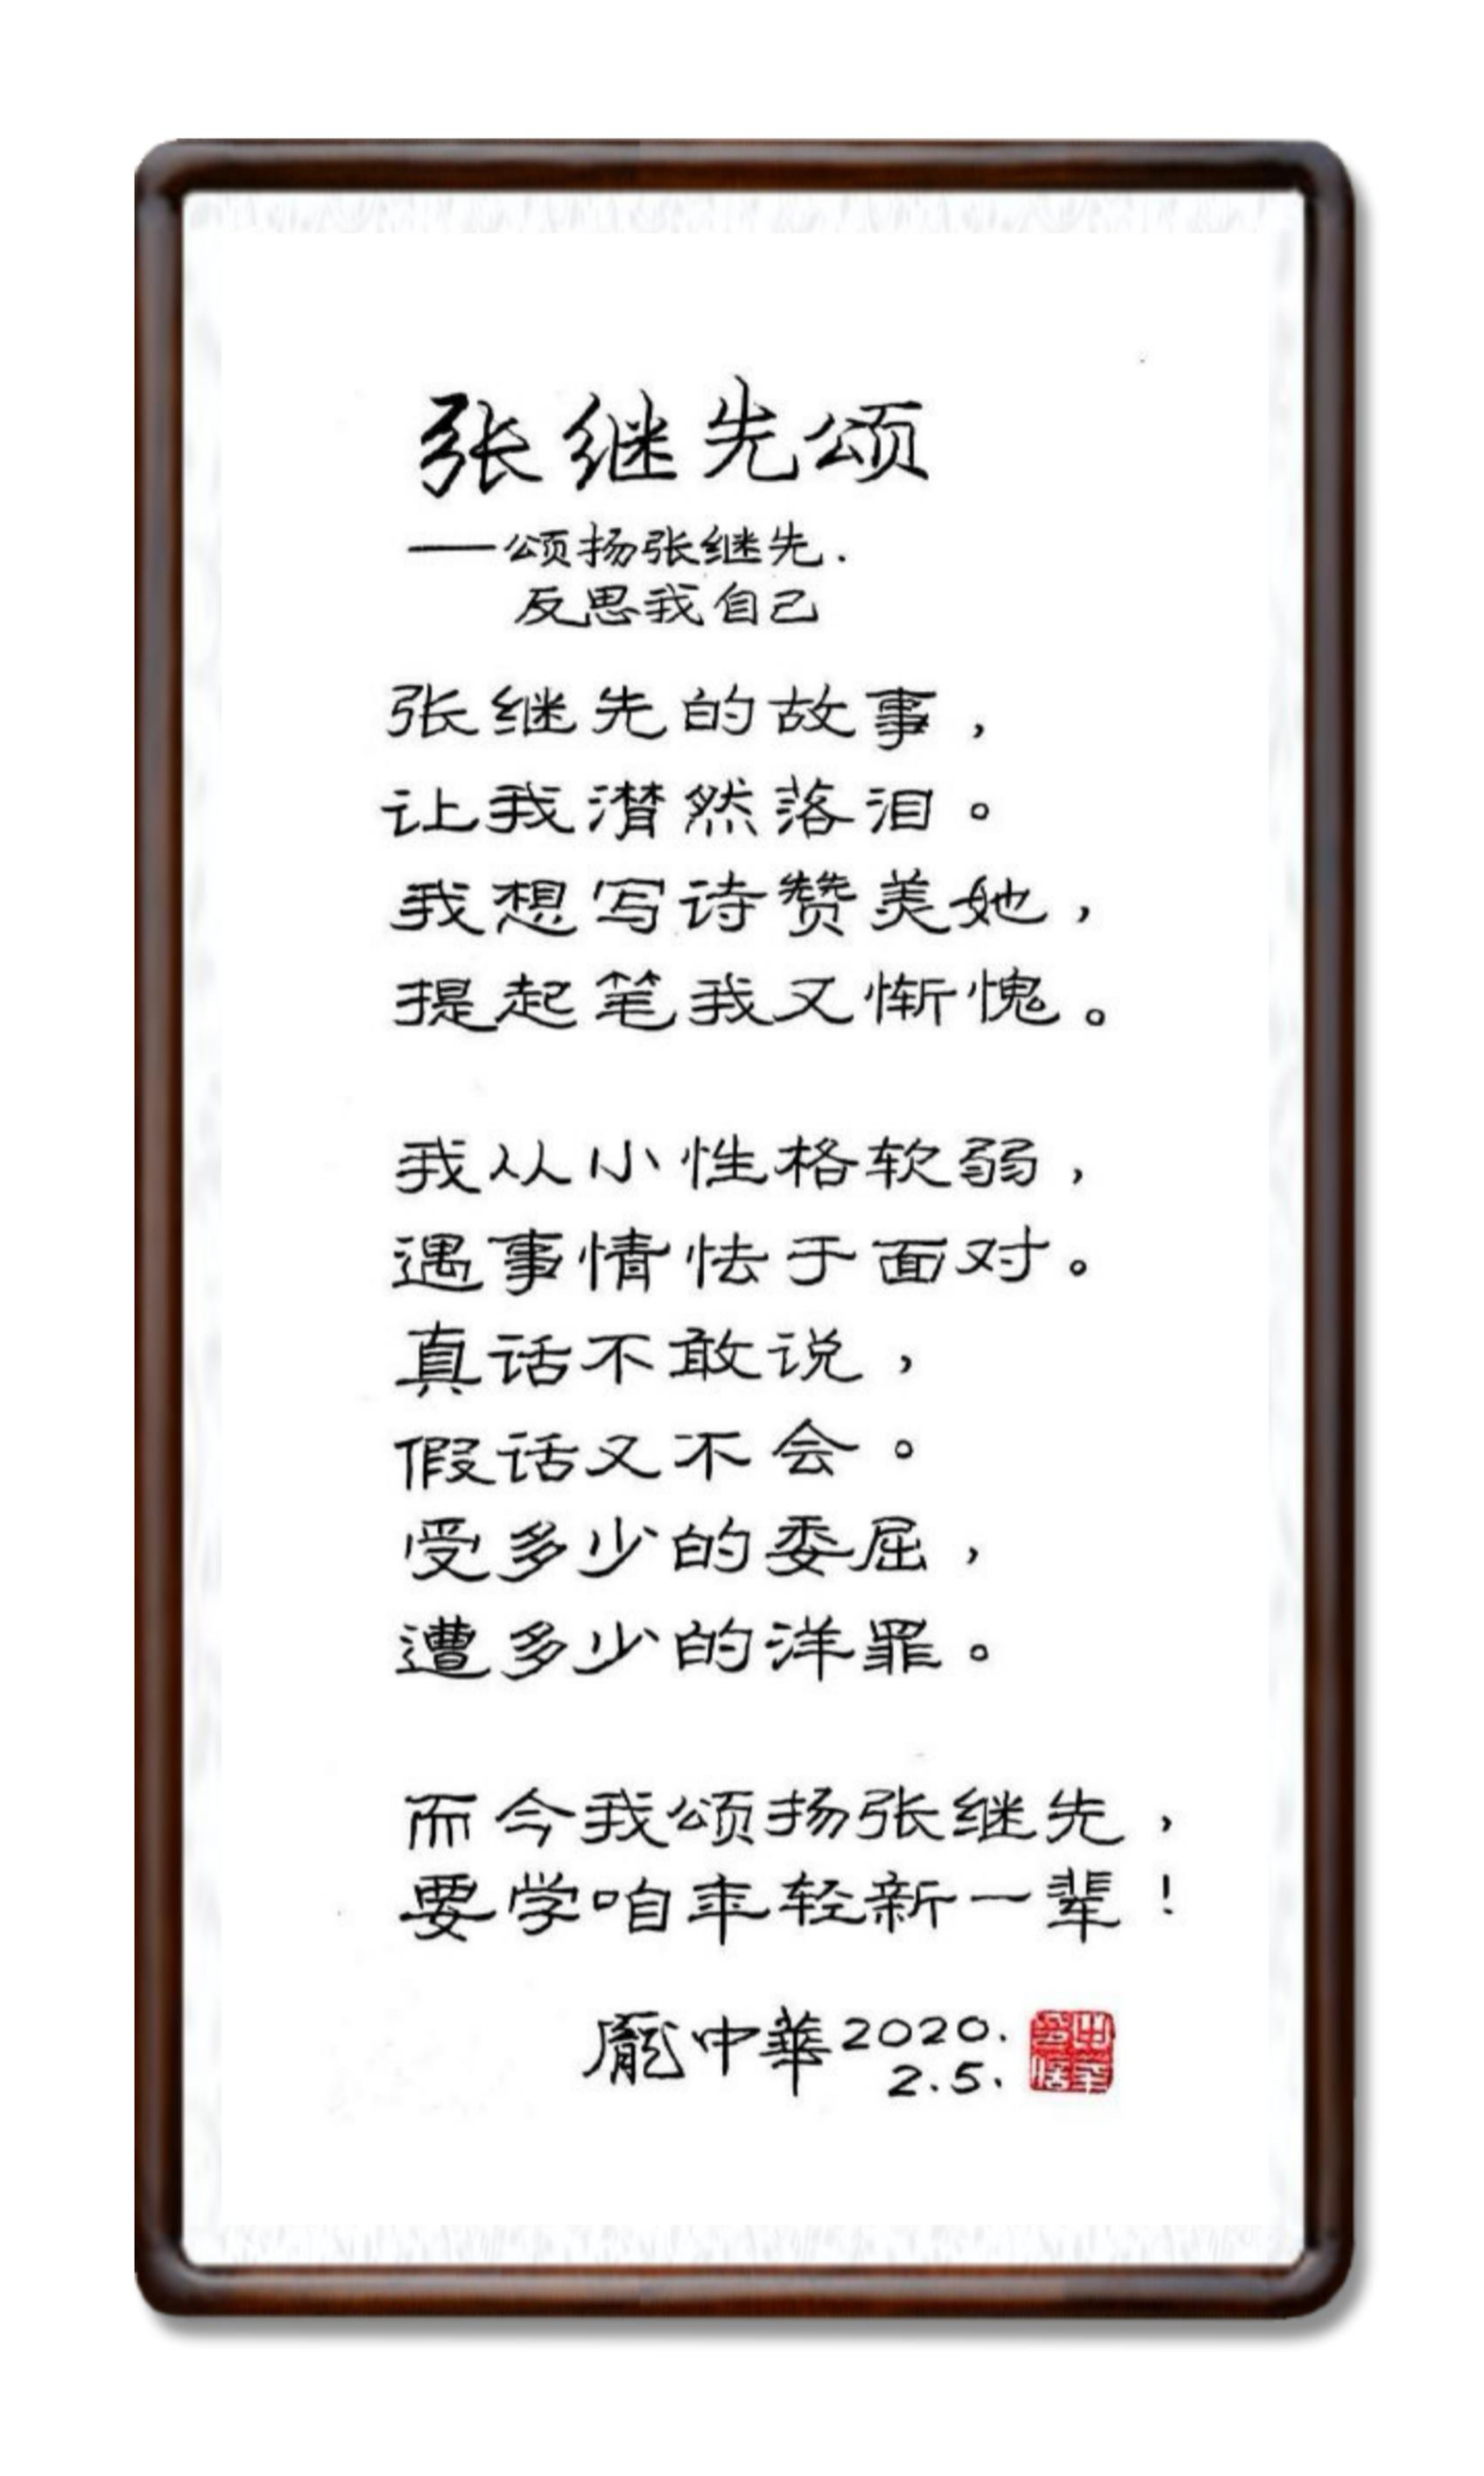 张继先颂
——颂扬张继先.
反思我自己
张继先的故事，
让我潸然落泪。
我想写诗赞美她，
提起笔我又惭愧。
我从小性格软弱，
遇事情怯于面对。
真话不敢说，
假话又不会。
受多少的委屈，
遭多少的洋罪。
而今我颂扬张继先，
要学咱年轻新一辈！
龐中華2020.
2.5.